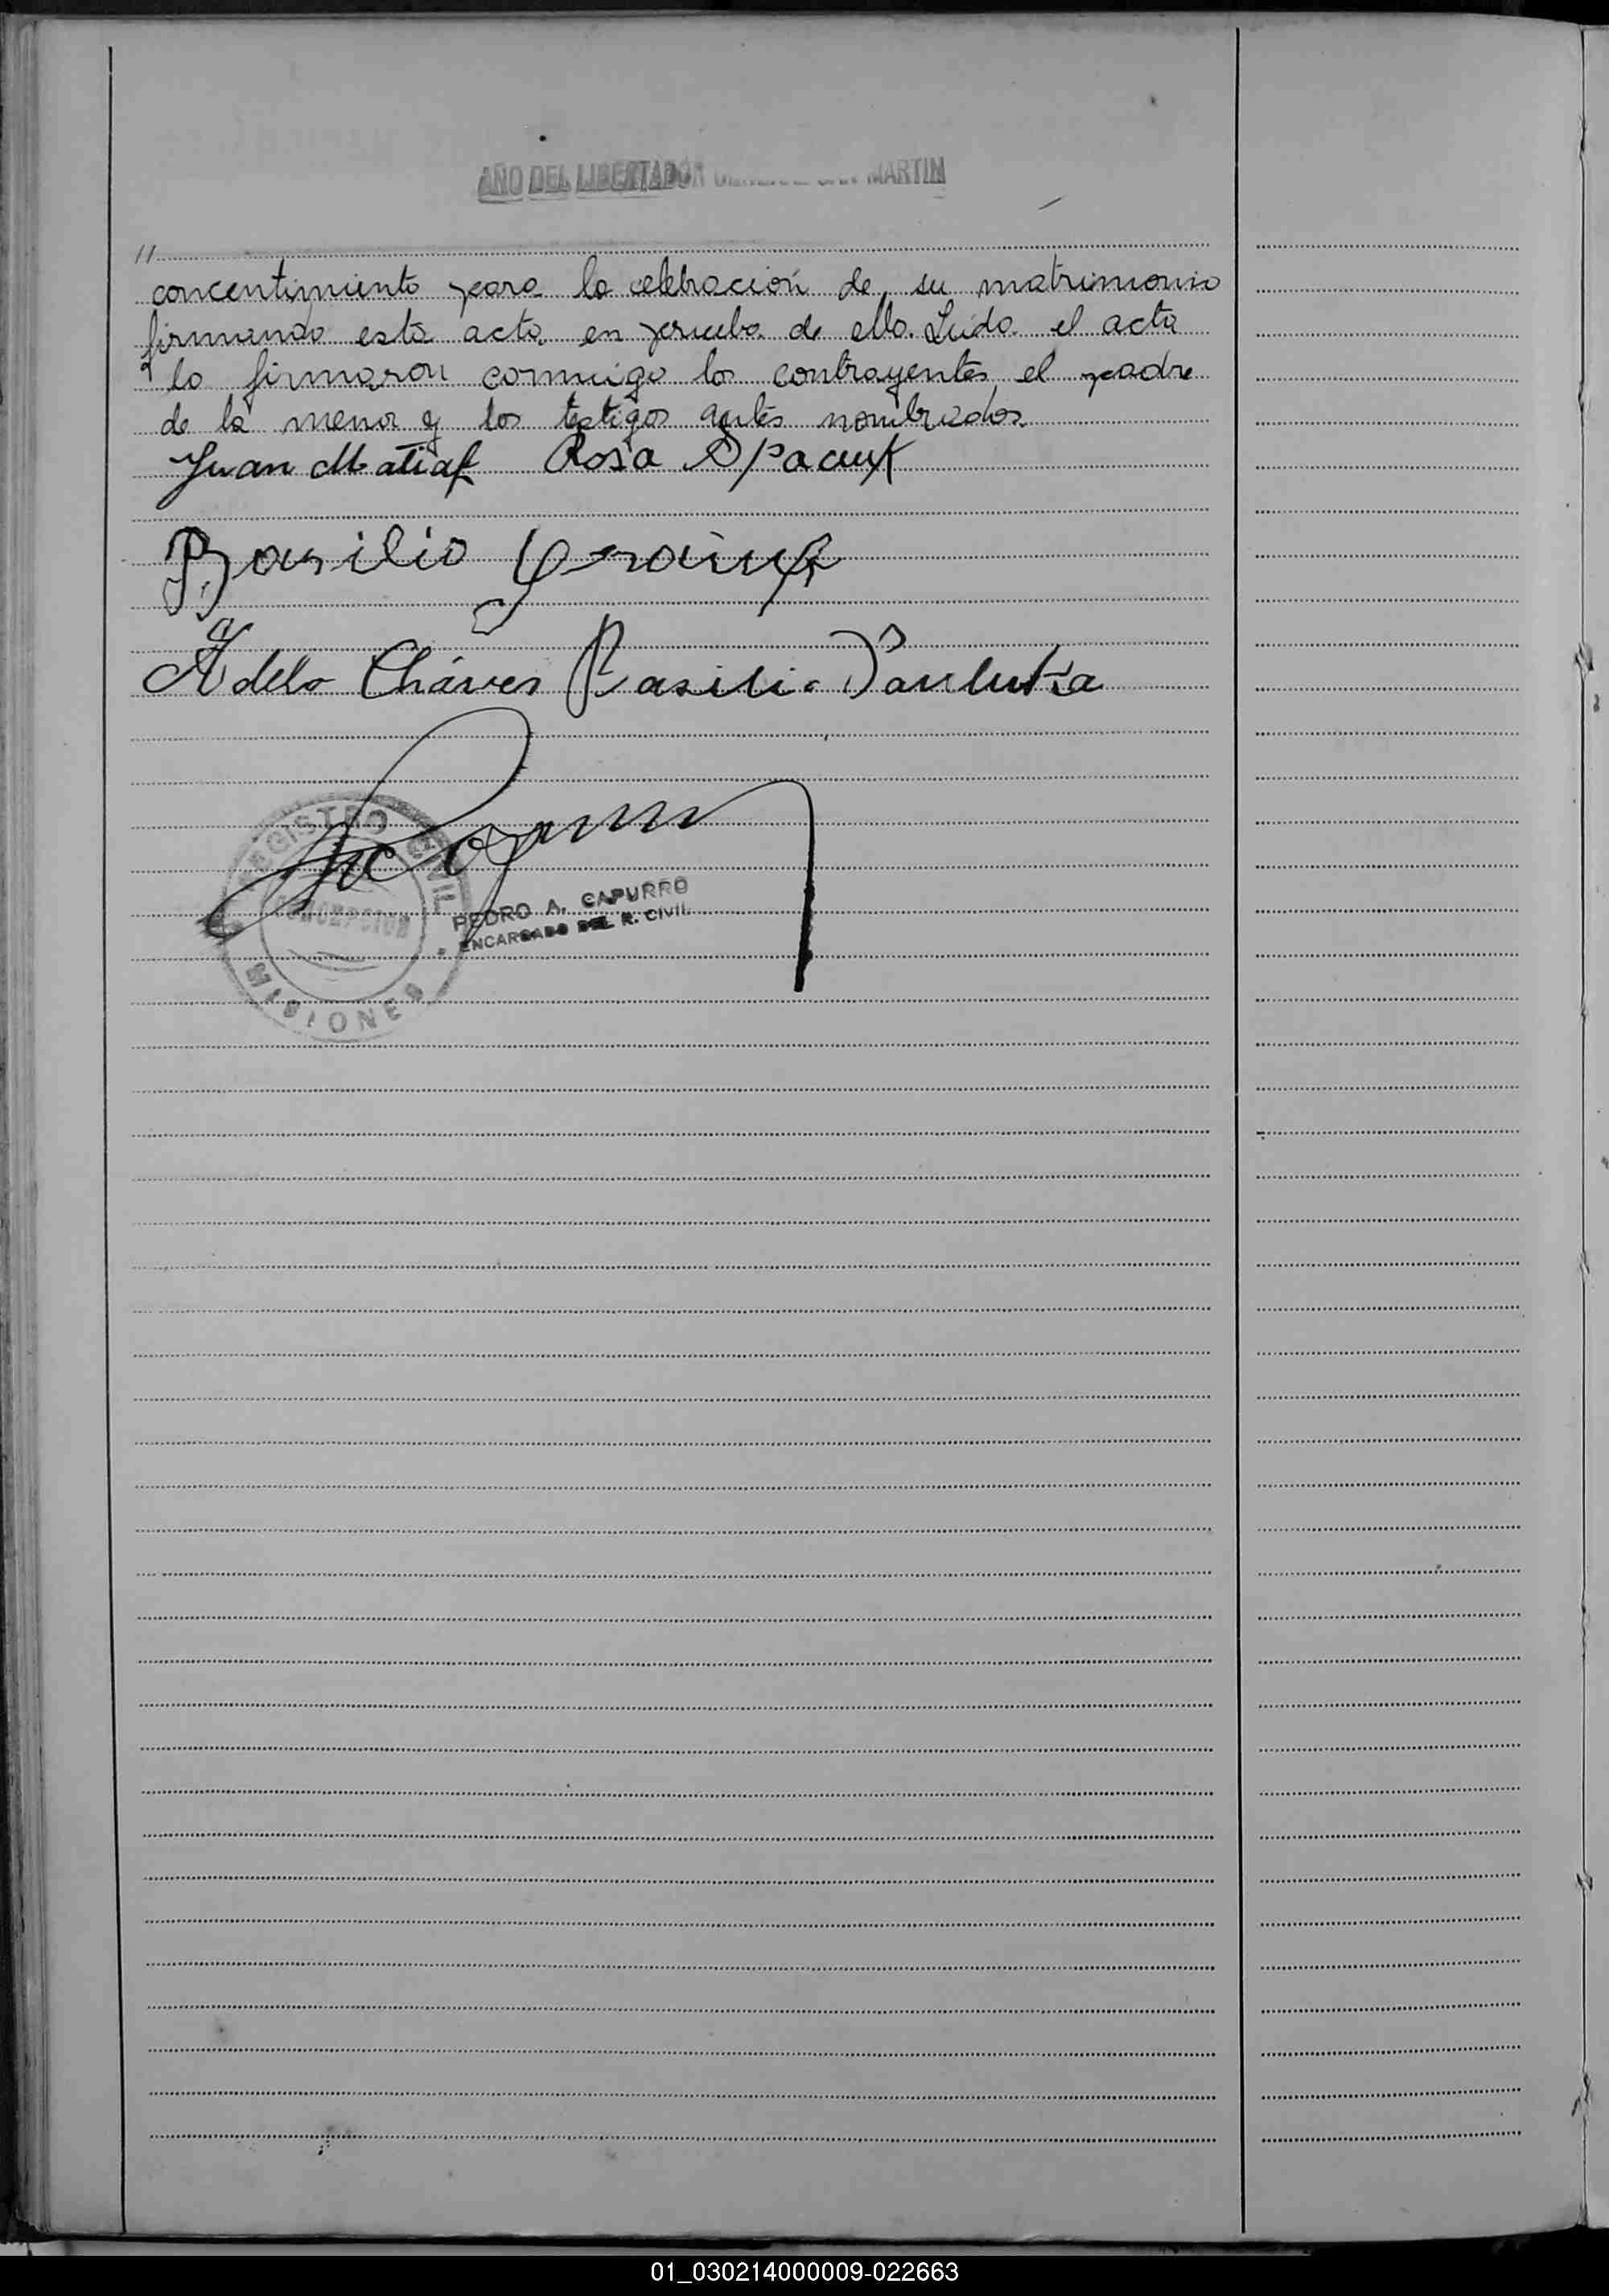 AÑO DEL LIBERTADOR GENERAL SAN MARTIN
//
concentimiento para la celebración de su matrimonio
firmando esta acta en prueba de ello. Leida el acta
la firmaron conmigo los contrayentes, el padre
de la menor y los testigos antes nombrados.
Juan Matiaf Rosa Spaciuk
Basilio
Adela Cháves Basilio Pauluka
REGISTRO CIVIL
CONCEPCION
MISIONES
PEDRO A. CAPURRO
ENCARGADO DEL R. CIVIL
01_030214000009-022663